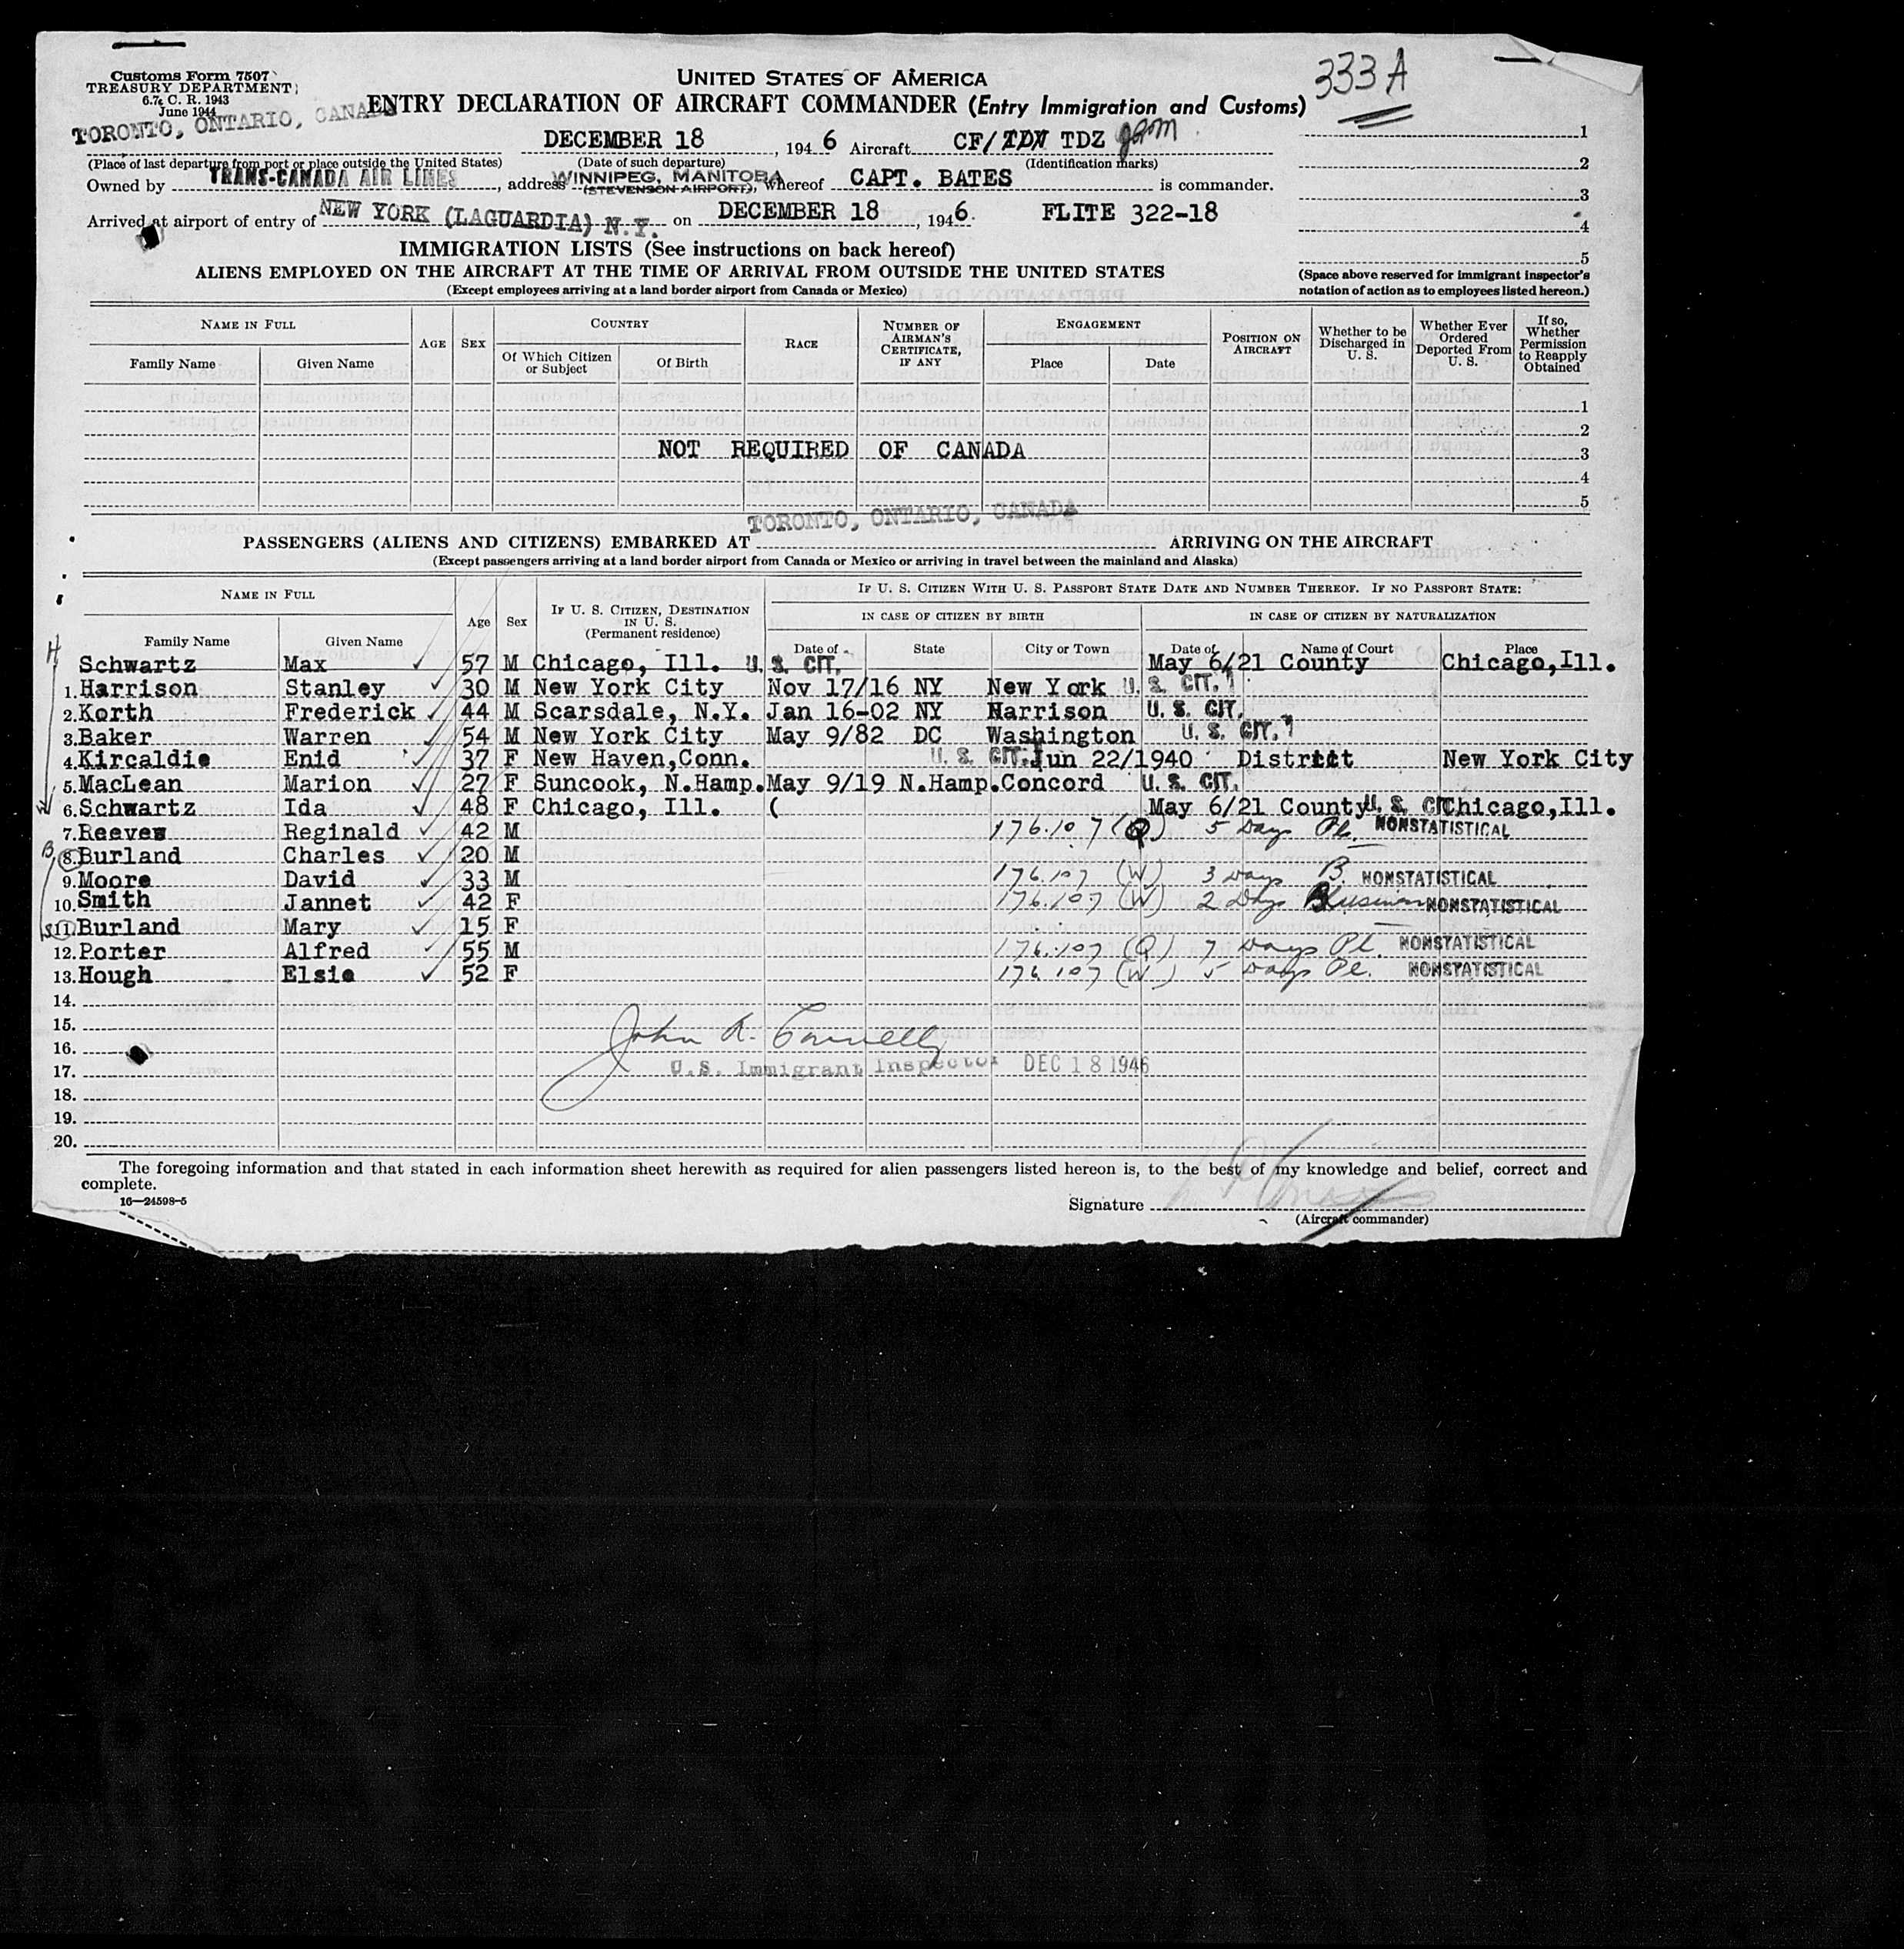 333A
Customs Form 7507
TREASURY DEPARTMENT
6.7, C. R. 1943
June 1944
UNITED STATES OF AMERICA
ENTRY DECLARATION OF AIRCRAFT COMMANDER (Entry Immigration and Customs)
TORONTO, ONTARIO, CANADA DECEMBER 18, 1946 Aircraft CF/TDN TDZ
(Place of last departure from port or place outside the United States) (Date of such departure) (Identification marks)
Owned by TRANS-CANADA AIR LINES, address WINNIPEG, MANITOBA (STEVENSON AIRPORT), whereof CAPT. BATES is commander.
Arrived at airport of entry of NEW YORK (LAGUARDIA) N.Y. on DECEMBER 18, 1946. FLITE 322-18
1
2
3
4
5
(Space above reserved for immigrant inspector's
notation of action as to employees listed hereon.)
IMMIGRATION LISTS (See instructions on back hereof)
ALIENS EMPLOYED ON THE AIRCRAFT AT THE TIME OF ARRIVAL FROM OUTSIDE THE UNITED STATES
(Except employees arriving at a land border airport from Canada or Mexico)
NAME IN FULL
Family Name Given Name
AGE SEX
COUNTRY
Of Which Citizen or Subject Of Birth
RACE
NUMBER OF AIRMAN'S CERTIFICATE, IF ANY
ENGAGEMENT
Place Date
POSITION ON AIRCRAFT
Whether to be Discharged in U. S.
Whether Ever Ordered Deported From U. S.
If so, Whether Permission to Reapply Obtained
1
2
NOT REQUIRED OF CANADA 3
4
5
TORONTO, ONTARIO, CANADA
PASSENGERS (ALIENS AND CITIZENS) EMBARKED AT ARRIVING ON THE AIRCRAFT
(Except passengers arriving at a land border airport from Canada or Mexico or arriving in travel between the mainland and Alaska)
NAME IN FULL
Family Name Given Name
Age Sex
IF U. S. CITIZEN, DESTINATION IN U. S.
(Permanent residence)
IF U. S. CITIZEN WITH U. S. PASSPORT STATE DATE AND NUMBER THEREOF. IF NO PASSPORT STATE:
IN CASE OF CITIZEN BY BIRTH IN CASE OF CITIZEN BY NATURALIZATION
Date of State City or Town Date of Name of Court Place
H Schwartz Max ✓ 57 M Chicago, Ill. U. S. CIT. May 6/21 County Chicago,Ill.
1. Harrison Stanley ✓ 30 M New York City Nov 17/16 NY New York U. S. CIT.
2. Korth Frederick ✓ 44 M Scarsdale, N.Y. Jan 16-02 NY Harrison U. S. CIT.
3. Baker Warren ✓ 54 M New York City May 9/82 DC Washington U. S. CIT.
4. Kircaldie Enid ✓ 37 F New Haven,Conn. U. S. CIT. Jun 22/1940 District New York City
5. MacLean Marion ✓ 27 F Suncook, N.Hamp. May 9/19 N.Hamp. Concord U. S. CIT.
6. Schwartz Ida ✓ 48 F Chicago, Ill. ( May 6/21 County U. S. CIT. Chicago,Ill.
7. Reeves Reginald ✓ 42 M 176.107 (Q) 5 Days Pl. NONSTATISTICAL
B 8. Burland Charles ✓ 20 M
9. Moore David ✓ 33 M 176.107 (W) 3 Days B. NONSTATISTICAL
10. Smith Jannet ✓ 42 F 176.107 (W) 2 Days Business NONSTATISTICAL
11. Burland Mary ✓ 15 F
12. Porter Alfred ✓ 55 M 176.107 (Q) 7 Days Pl. NONSTATISTICAL
13. Hough Elsie ✓ 52 F 176.107 (W) 5 Days Pl. NONSTATISTICAL
14.
15.
16. John A. Connelly
17. U.S. Immigrant Inspector DEC 18 1946
18.
19.
20.
The foregoing information and that stated in each information sheet herewith as required for alien passengers listed hereon is, to the best of my knowledge and belief, correct and
complete.
16—24598-5
Signature
(Aircraft commander)